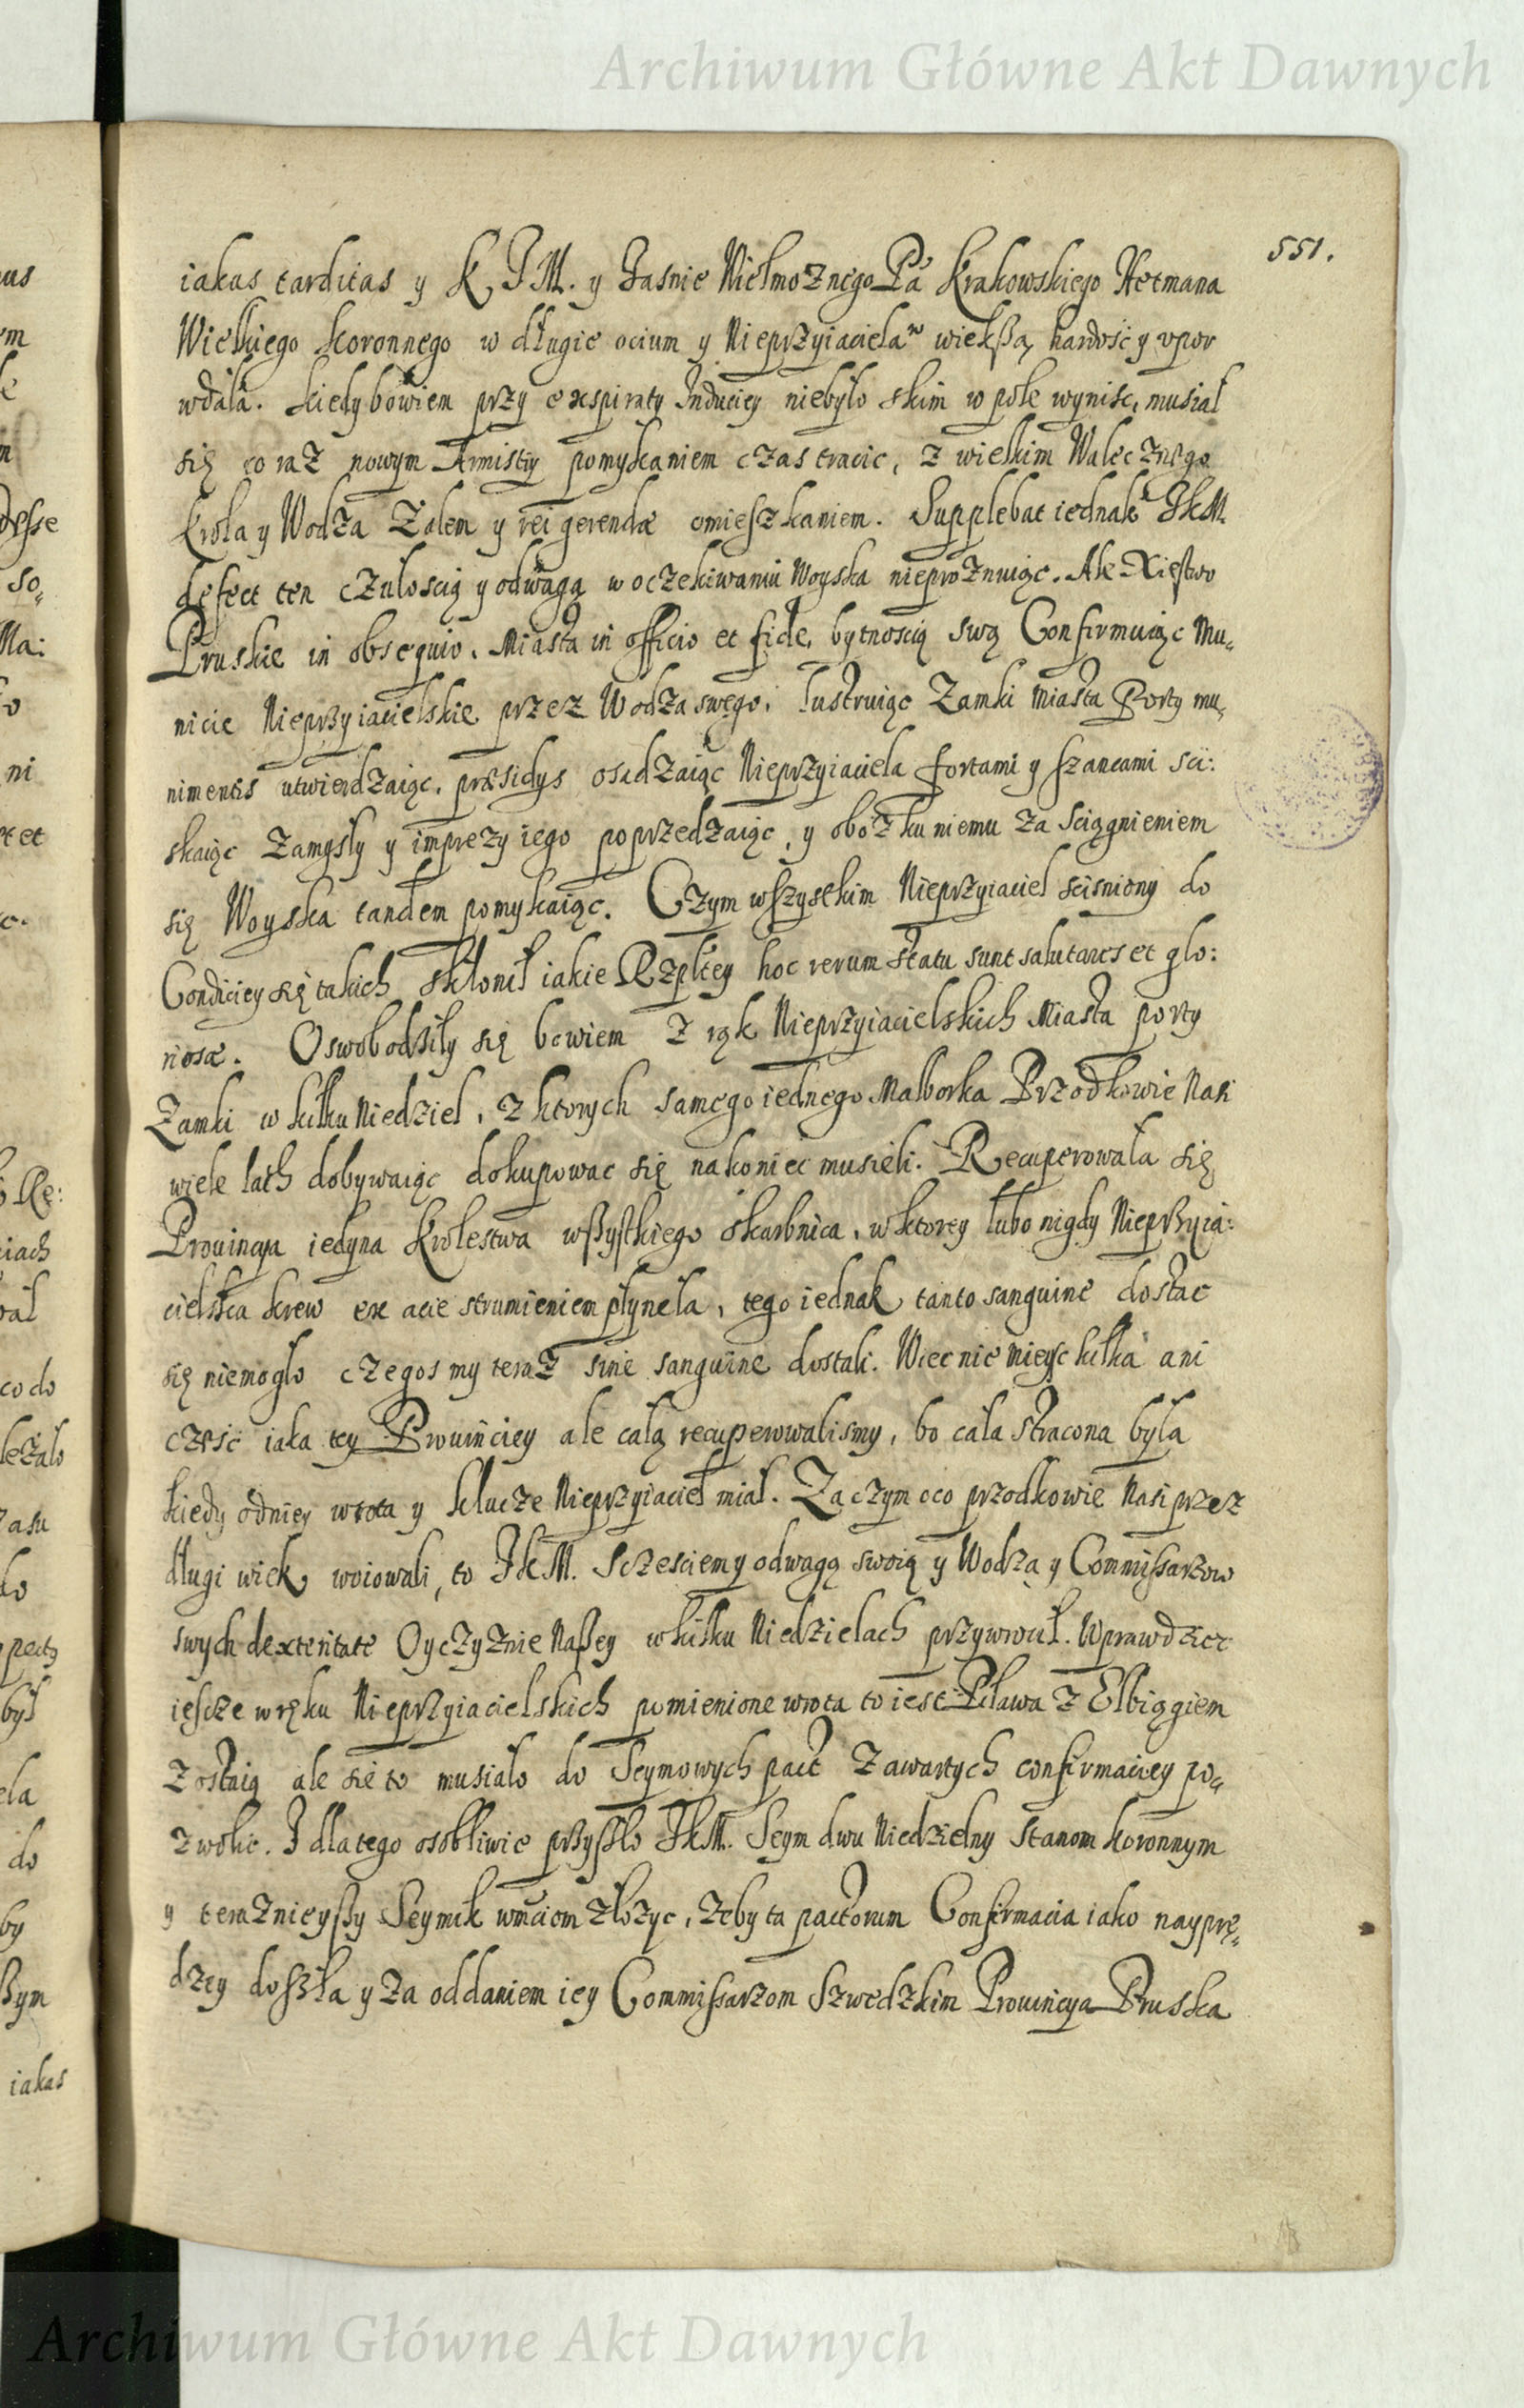 Archiwum Główne Akt Dawnych
551.
iakas tarditas y K. J M. y Jasnie Wielmoznego Pa Krakowskiego Hetmana
Wielkiego koronnego w długie ocium y Nieprzyiaciela w wiekßą hardość y vpor
wdała. kiedy bowiem przy exspiraty Induciey niebyło skim w pole wynisc, musiał
się co raz nowym Armistiy pomykaniem czas tracic, z wielkim Walecznego
krola y Wodza Zalem y rei gerendæ omieszkaniem. Supplebat iednak JkM.
defect ten czułoscią y odwagą w oczekiwaniu Woyska nieproznuiąc. Ale Xięstwo
Pruskie in obsequio, Miasta in officio et fide, bytnoscią swą Confirmuiąc Mu„
nicie Nieprzyiacielskie przez Wodza swego, lustruiąc Zamki Miasta Porty mu„
nimentis utwierdzaiąc, præsidys osadzaiąc Nieprzyiaciela fortami y szancami sci:
skaiąc zamysły y imprezy iego poprzedzaiąc, y oboz ku niemu za sciągnieniem
się Woyska tandem pomykaiąc. Czym wszystkim Nieprzyiaciel scisniony do
Condiciey się takich skłonił iakie Rzpltey hoc rerum statu sunt salutares et glo:
riosæ. Oswobodziły się bowiem z rąk Nieprzyiacielskich Miasta porty
Zamki w kilku Niedziel, z ktorych samego iednego Malborka Przodkowie Nasi
wiele lath dobywaiąc dokupowac się nakoniec musieli. Recuperowała się
Prouincya iedyna Krolestwa wßystkiego skarbnica, w ktorey lubo nigdy Nieprzyia:
cielska krew ex acie strumieniem płyneła, tego iednak tanto sanguine dostac
się niemogło czegos my teraz sine sanguine dostali. Wiec nie mieysc kilka ani
częsc iaka tey Prouinciey ale całą recuperowalismy, bo cała stracona była
kiedy odniey wrota y klucze Nieprzyiaciel miał. Zaczym oco przodkowie Nasi przez
długi wiek woiowali, to JkM. Sczesciem y odwagą swoią y Wodza y Commissarzow
swych dexteritate Oyczyznie Naßey w kilku Niedzielach przywrocił. Wprawdziec
iescze w ręku Nieprzyiacielskich pomienione wrota to iest Pilawa z Elbiągiem
zostaią ale się to musiało do Seymowych pact zawartych confirmaciey po„
zwolic. I dla tego osobliwie przyßło JkM. Seym dwu Niedzielny Stanom koronnym
y teraznieyßy Seymik wmciom złozyc, zeby ta pactorum Confirmacia iako nayprę„
dzey doszła y za oddaniem iey Commissarzom Szwedzkim Prouincya Pruska
Archiwum Główne Akt Dawnych